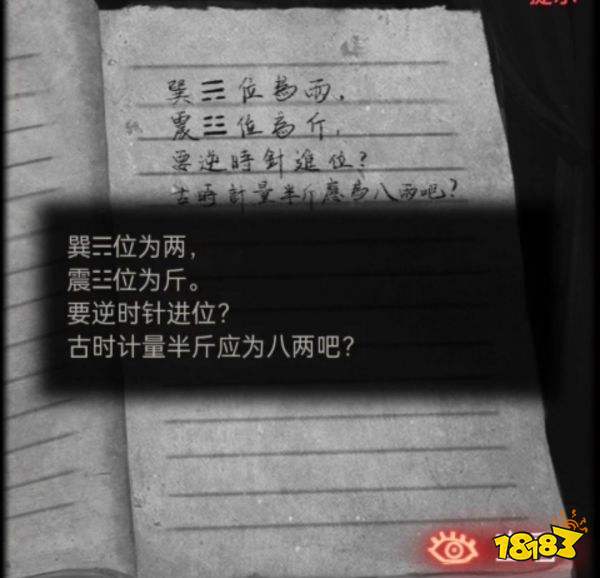 提示
巽☴位為兩，
震☳位為斤，
要逆時針進位？
古時計量半斤應為八兩吧？
巽☴位为两，
震☳位为斤。
要逆时针进位？
古时计量半斤应为八两吧？
18183